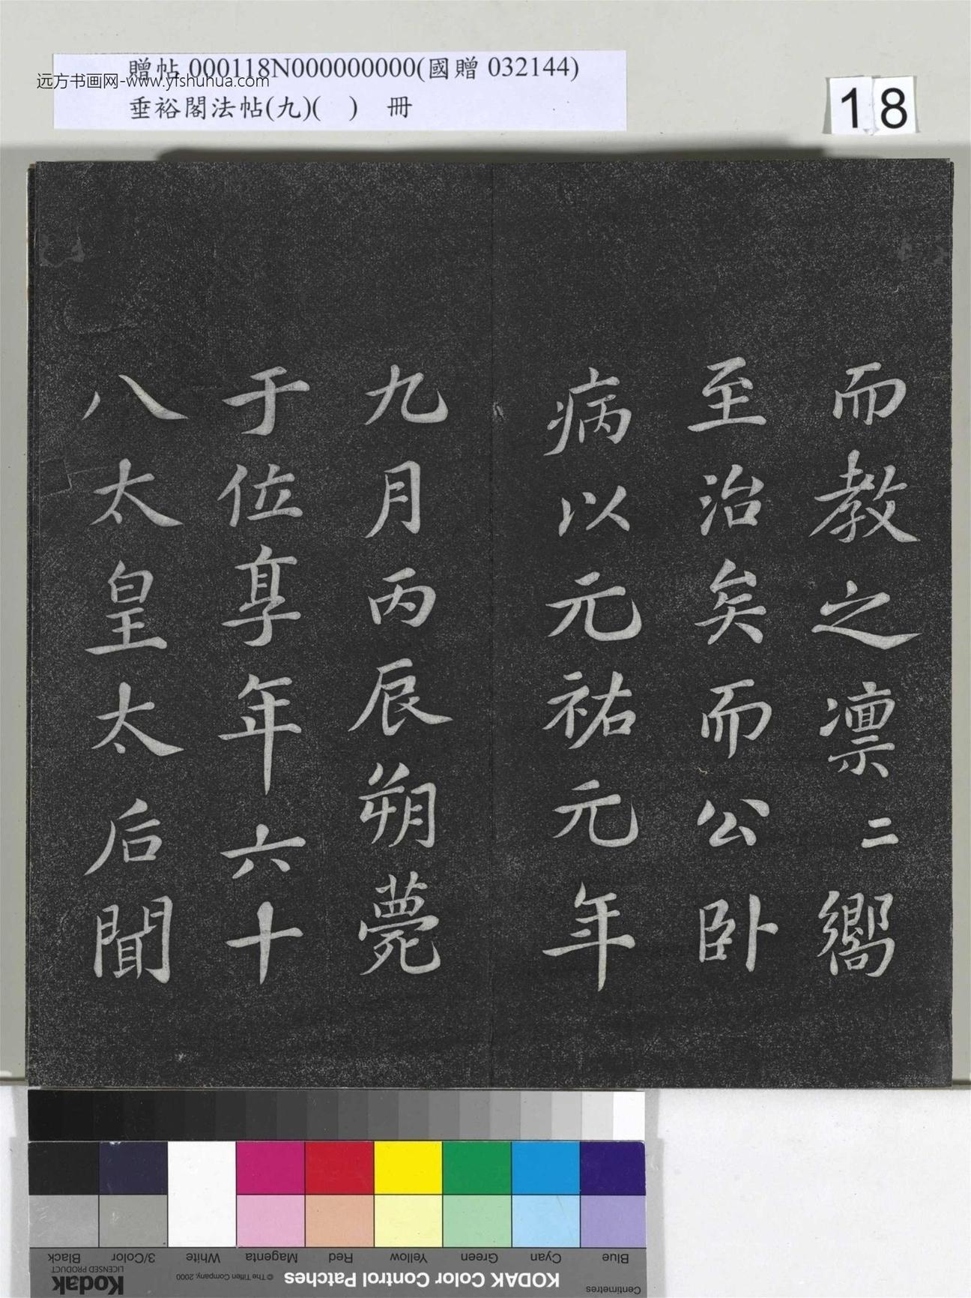 贈帖 000118N000000000(國贈 032144)
远方书画网-www.yishuhua.com
垂裕閣法帖(九)( ) 冊
18
而教之凛二嚮
至治矣而公卧
病以元祐元年
九月丙辰朔薨
于位享年六十
八太皇太后聞
Black
3/Color
White
Magenta
Red
Yellow
Green
Cyan
Blue
Kodak
LICENSED PRODUCT
© The Tiffen Company, 2000
KODAK Color Control Patches
Centimetres